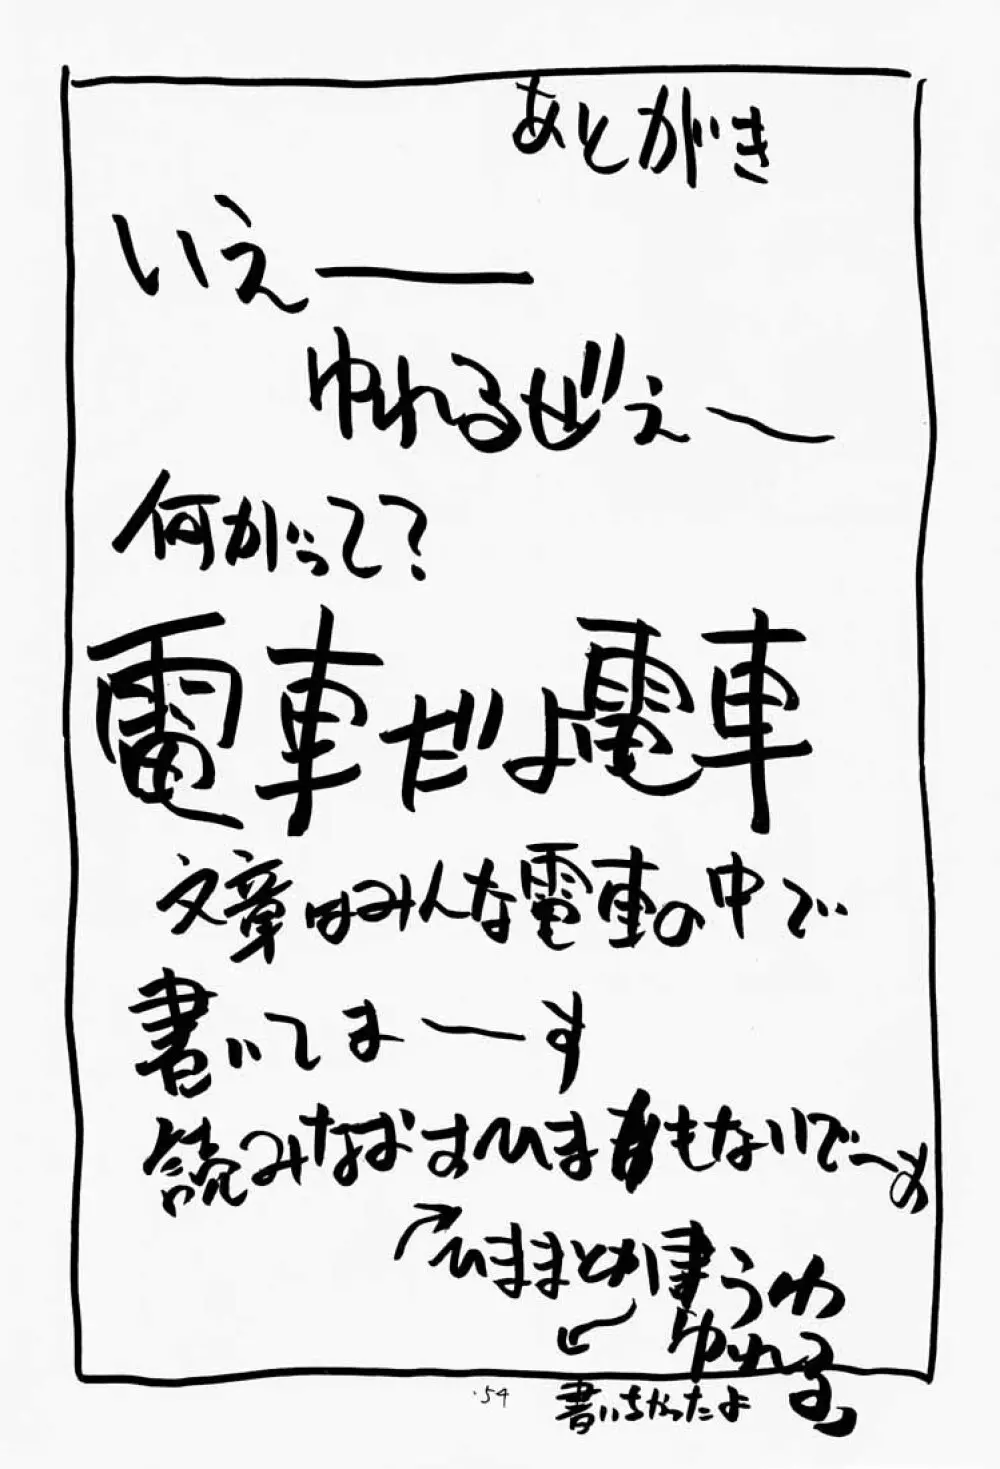 あとがき
いえー
ゆれるぜえ〜
何がって?
電車だよ電車
文章はみんな電車の中で
書いてま〜す
読みなおすひまもないで〜す
ひままとか書うわ
ゆれる
書いちゃったよ
54